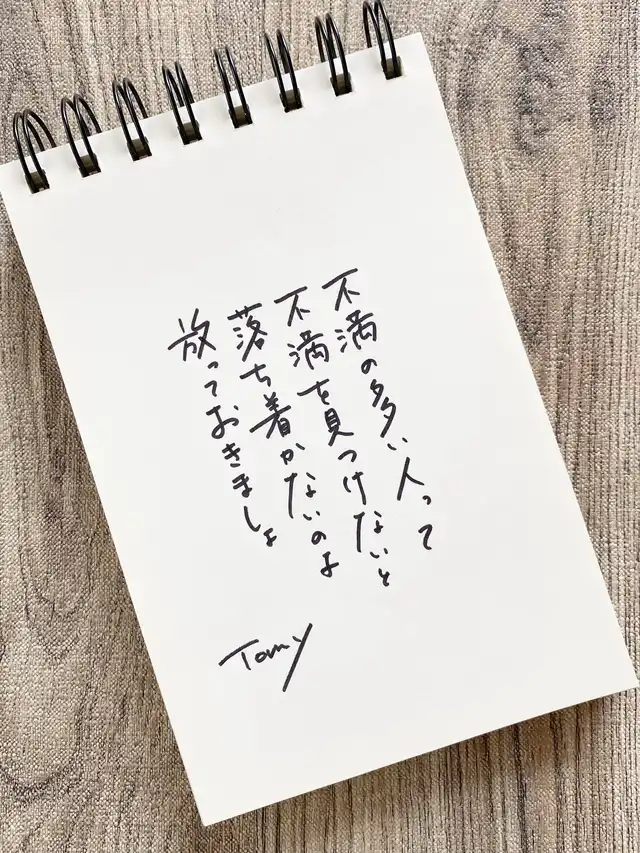 不満の多い人って
不満を見つけないと
落ち着かないのよ
放っておきましょ
Tomy